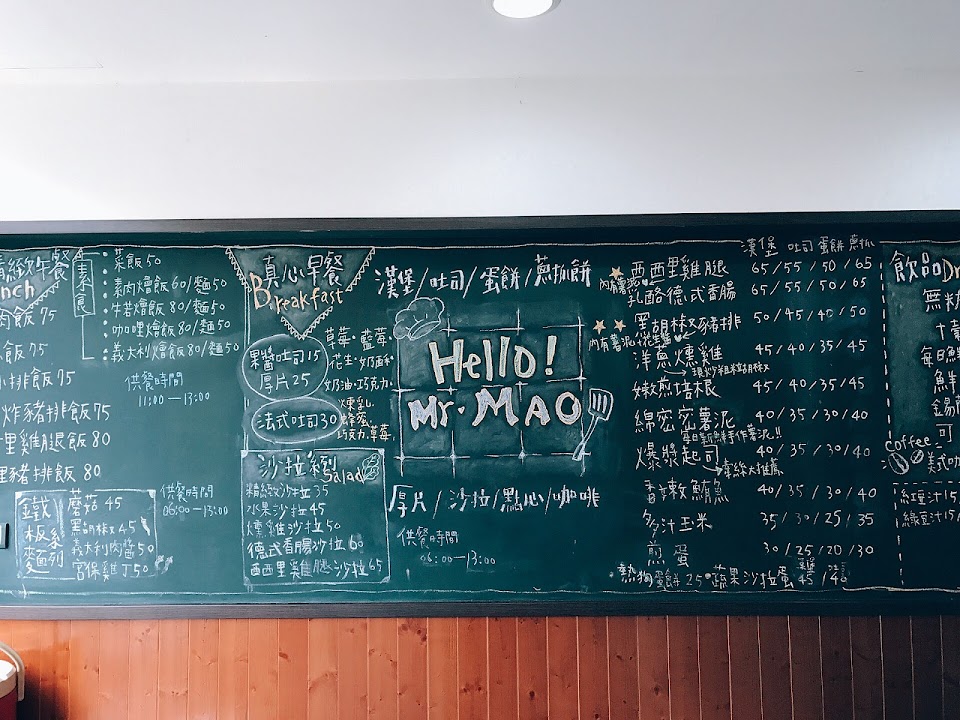 精緻午餐
nch
肉飯75
飯75
排飯75
炸豬排飯75
里雞腿飯 80
里豬排飯 80
素食
菜飯50
素肉燴飯60/麵50
牛若燴飯 80/麵50
咖哩燴飯80/麵50
義大利燴飯80/麵50
供餐時間
11:00—13:00
鐵板系麵列
蘑菇 45
黑胡椒 45
義大利肉醬50
宮保雞丁50
供餐時間
06:00—13:00
真心早餐
Breakfast
果醬吐司15
厚片25
草莓·藍莓
花生·奶酥
奶油·巧克力
法式吐司30
煉乳
蜂蜜
巧克力·草莓
沙拉系列
Salad
精緻沙拉 35
水果沙拉45
燻雞沙拉50
德式香腸沙拉60
西西里雞腿沙拉65
漢堡/吐司/蛋餅/蔥抓餅
Hello!
Mr. MAO
厚片/沙拉/點心/咖啡
供餐時間
06:00—13:00
漢堡 吐司 蛋餅 蔥抓
西西里雞腿 65/55/50/65
內有薯泥
乳酪德式香腸 65/55/50/65
黑胡椒豬排 50/45/40/50
內有薯泥+花生醬
洋蔥燻雞 45/40/35/45
嫩煎培根 40/35/35/45
綿密密薯泥 40/35/30/40
每日新鮮手作薯泥!!
爆漿起司 40/35/30/40
大推薦
鮪魚 40/35/30/40
多汁玉米 35/30/25/35
煎蛋 30/25/20/30
熱狗蛋餅 25
蔬果沙拉蛋 45/40
飲品Dr
無糖
十
每日
鮮
錫蘭
可
coffee
美式咖
紅棗汁15
綠豆汁15